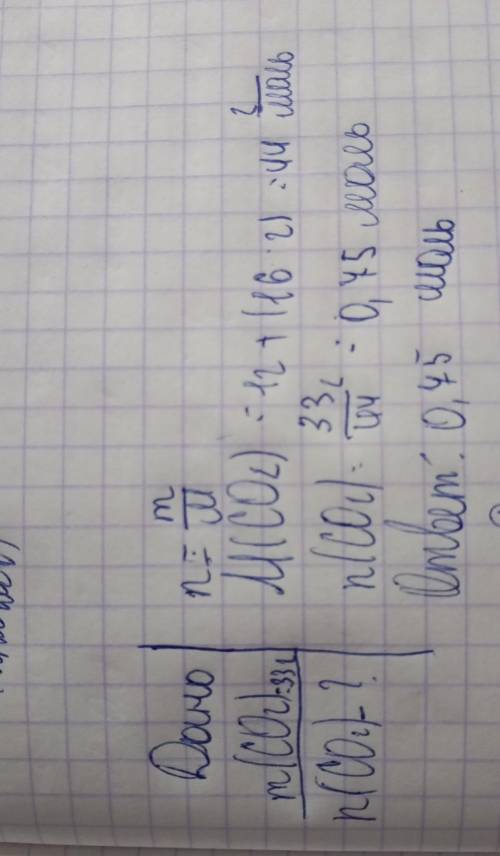 Дано
m(CO₂)=33г
n(CO₂)-?
n = m/M
M(CO₂) = 12 + (16·2) = 44 г/моль
n(CO₂) = 33г/44 = 0,75 моль
Ответ: 0,75 моль